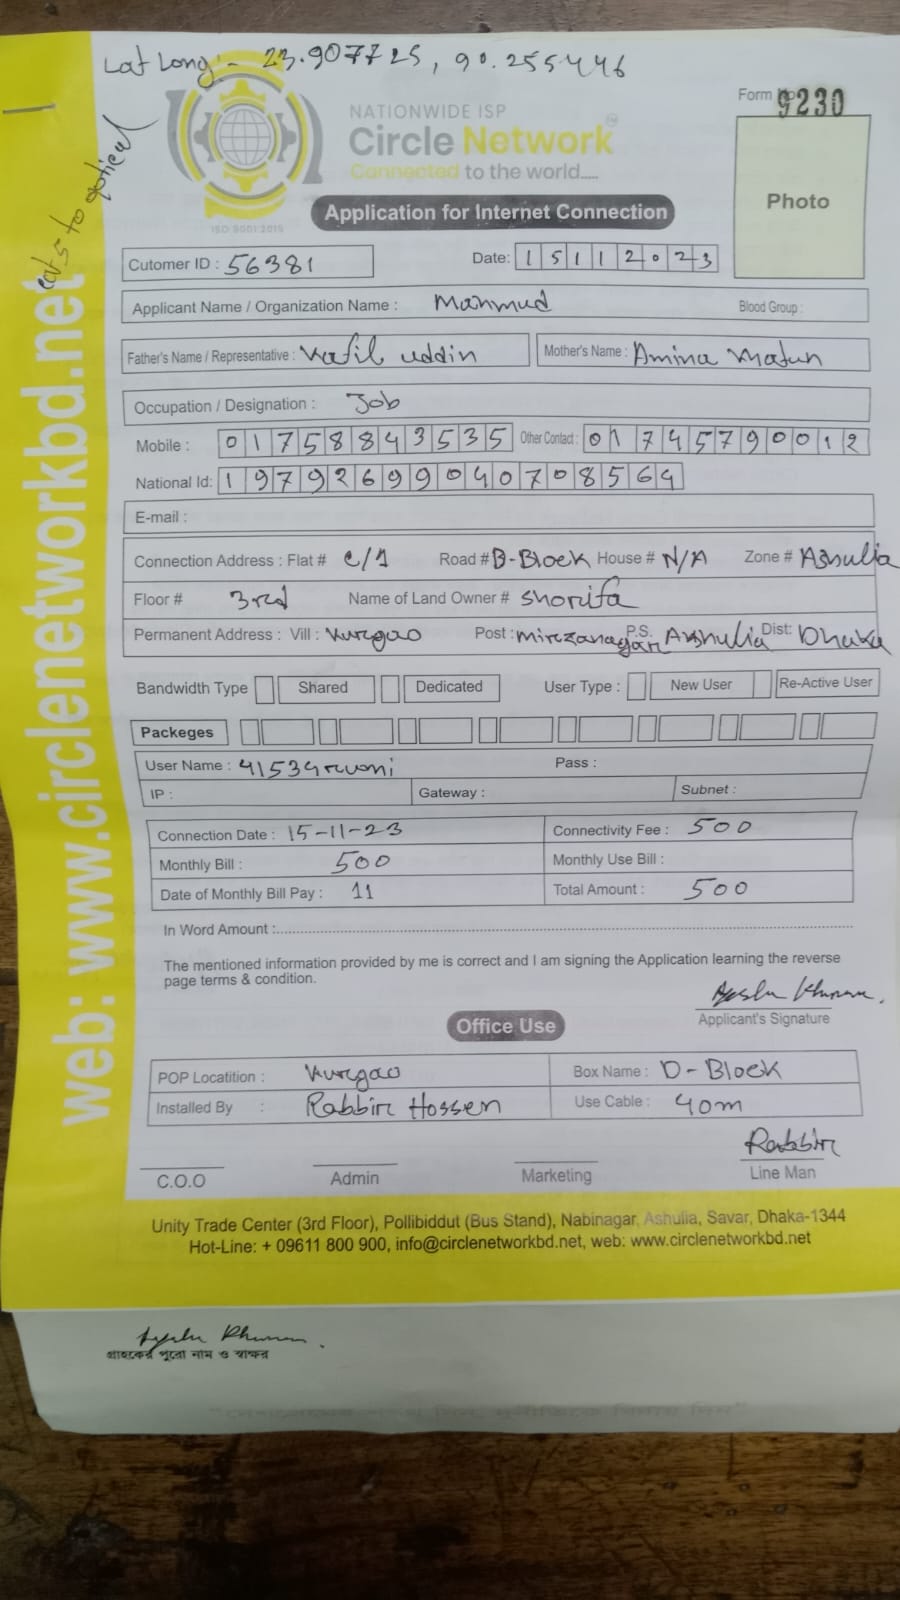 Lat Long:- 23.907725, 90.255446
cat5 to optical
Form No 9230
NATIONWIDE ISP
Circle Network
Connected to the world.....
ISO 9001:2015
Application for Internet Connection
Photo
Cutomer ID : 56381
Date: 15112023
Applicant Name / Organization Name : Mahmud
Blood Group :
Father's Name / Representative : Kafil uddin
Mother's Name : Amina Khatun
Occupation / Designation : Job
Mobile : 01758843535 Other Contact : 01745790012
National Id: 19792699040708564
E-mail :
Connection Address : Flat # C/1 Road # D-Block House # N/A Zone # Ashulia
Floor # 3rd Name of Land Owner # Shorifa
Permanent Address : Vill : Kurgao Post : Mirzanagar P.S. Ashulia Dist: Dhaka
Bandwidth Type Shared Dedicated User Type : New User Re-Active User
Packeges
User Name : 41534runi Pass :
IP : Gateway : Subnet :
Connection Date : 15-11-23 Connectivity Fee : 500
Monthly Bill : 500 Monthly Use Bill :
Date of Monthly Bill Pay : 11 Total Amount : 500
In Word Amount :
The mentioned information provided by me is correct and I am signing the Application learning the reverse
page terms & condition.
Applicant's Signature
Office Use
POP Locatition : Kurgao Box Name : D-Block
Installed By : Rabbir Hossen Use Cable : 40m
Rabbir
C.O.O Admin Marketing Line Man
Unity Trade Center (3rd Floor), Pollibiddut (Bus Stand), Nabinagar, Ashulia, Savar, Dhaka-1344
Hot-Line: + 09611 800 900, info@circlenetworkbd.net, web: www.circlenetworkbd.net
web: www.circlenetworkbd.net
গ্রাহকের পুরো নাম ও স্বাক্ষর